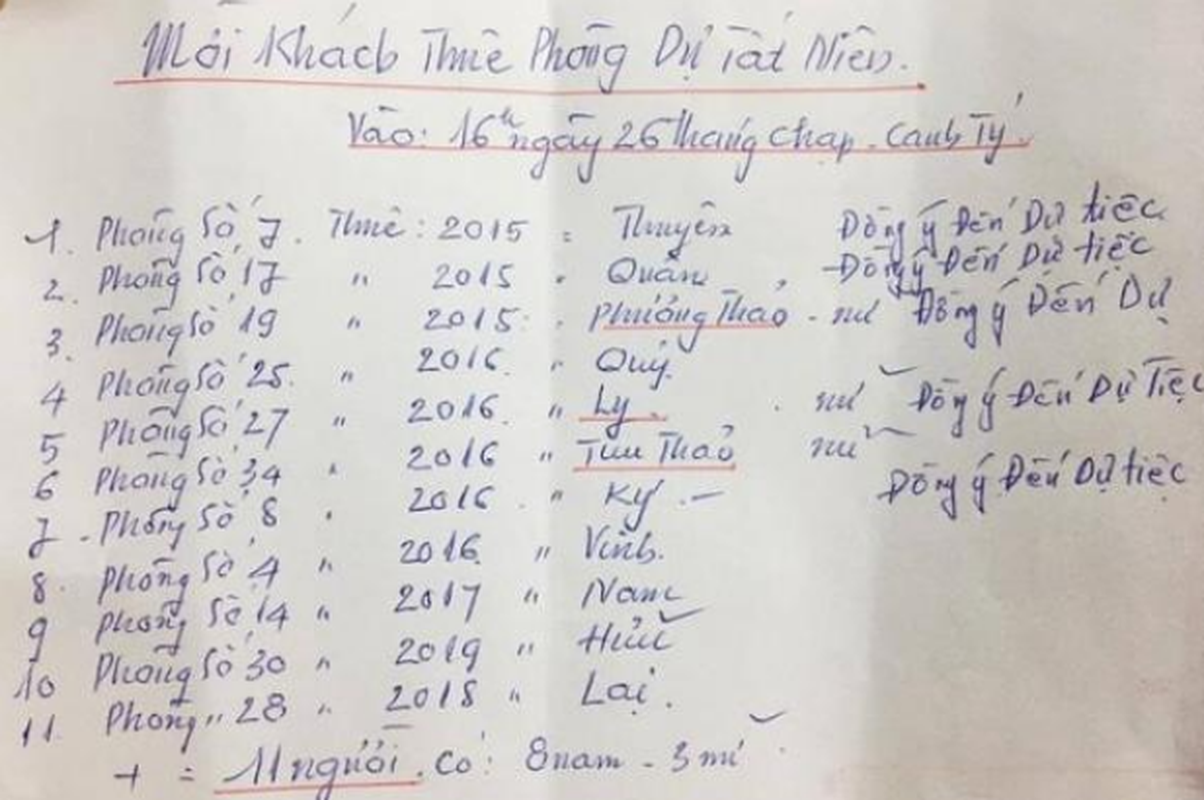 Mời Khách Thuê Phòng Dự Tất Niên.
Vào: 16h ngày 26 Tháng Chạp. Canh Tý.
1. Phòng Số 7. Thuê: 2015 = Thuyên Đồng ý Đến Dự tiệc
2. Phòng Số 17 " 2015 " Quân Đồng ý Đến Dự tiệc
3. Phòng Số 19 " 2015 " Phương Thảo - nữ Đồng ý Đến Dự
4 Phòng Số 25. " 2016. " Quý.
5 Phòng Số 27 " 2016. " Ly. nữ Đồng ý Đến Dự Tiệc
6 Phòng Số 34 " 2016 " Thu Thảo nữ
7 - Phòng Số 8 " 2016 " Ký. - Đồng ý Đến Dự tiệc
8. Phòng Số 4 " 2016 " Vinh.
9 Phòng Số 14 " 2017 " Nam
10 Phòng Số 30 " 2019 " Hữu
11. Phòng " 28 " 2018 " Lại.
+ = 11 người. Có: 8 nam - 3 nữ